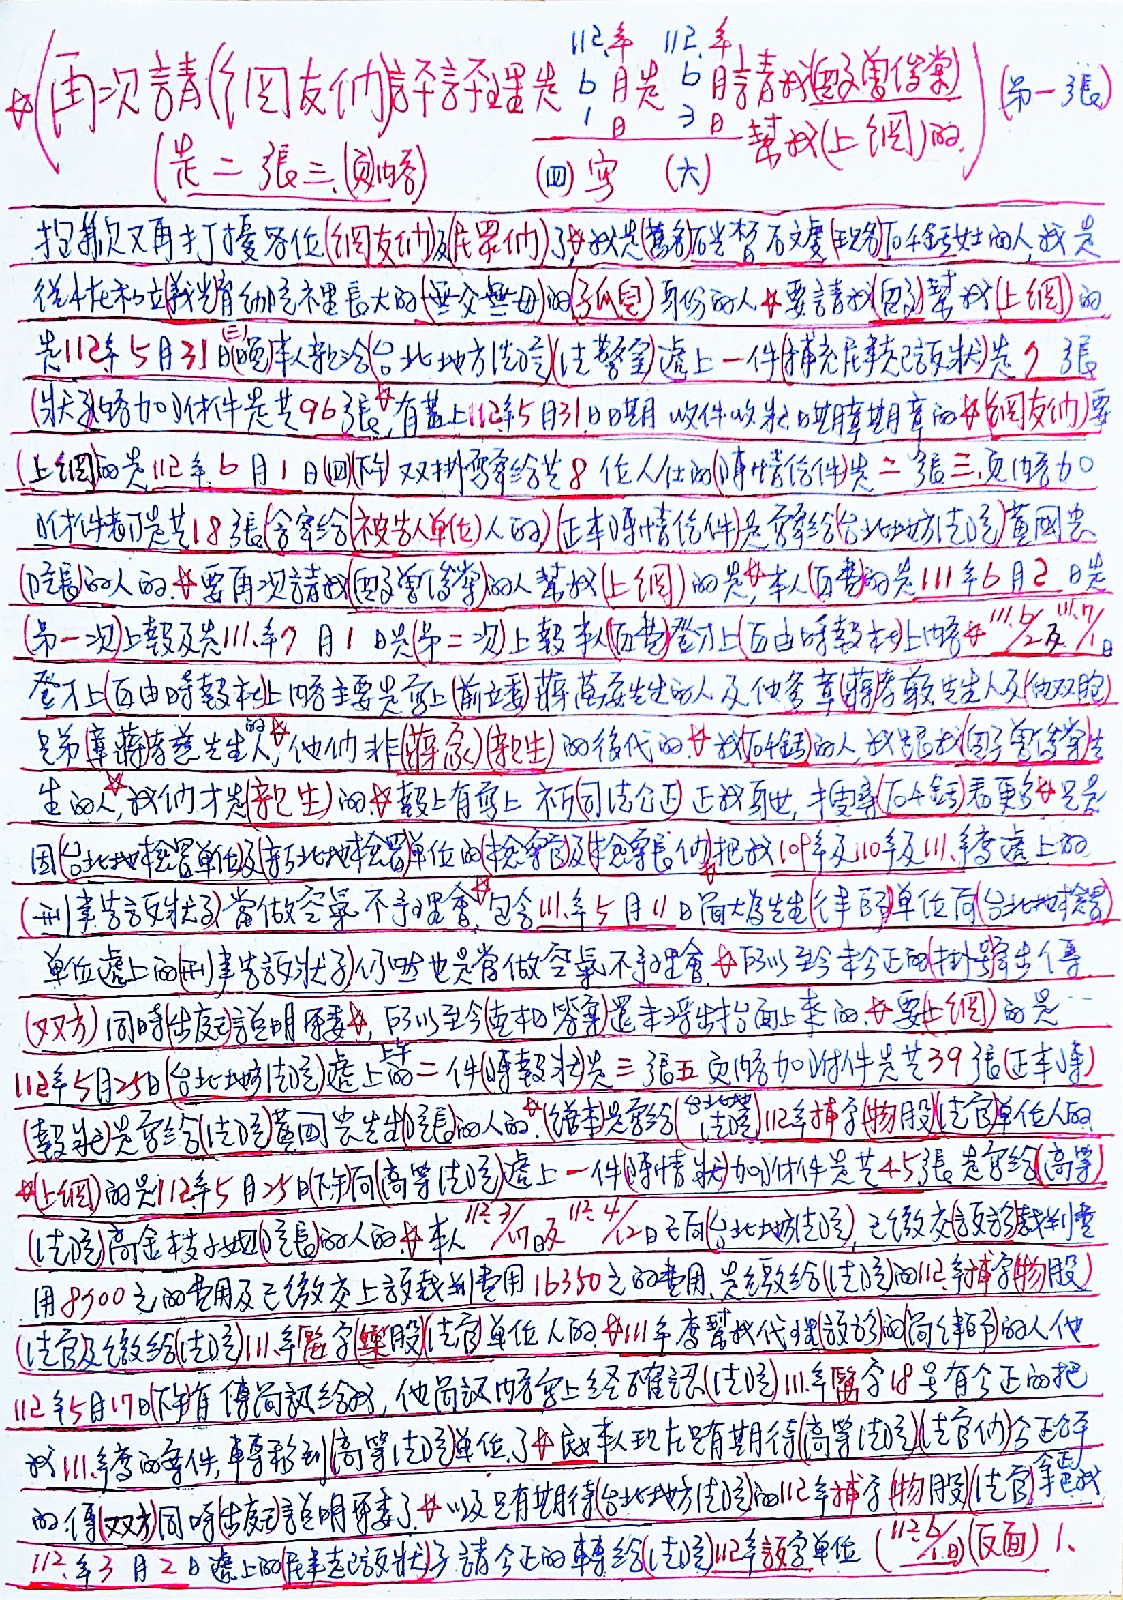 112.年 112.年
☆(再次請(網友們)評評理是6月1日是6月3日請我(兒子曾俊業) (第一張)
(是二張三(頁內容) (四)寫 (六) 幫我(上網)的
抱歉又再打擾各位(網友們)及(民眾們)了☆我是(舊名)石 石文慶(現名)石千鈺女士的人,我是
從小在私立義光育幼院裡長大的(無父無母)的(孤兒)身份的人☆要請我(兒子)幫我(上網)的
是112年5月31日(三)本人親洽(台北地方法院)(法警室)遞上一件(補充民事起訴狀)是7張
(狀子)內容加附件是共96張☆有蓋上112年5月31日日期收件收狀日期章期章的☆(網友們)要
(上網)的是112年6月1日(四)下午双掛號寄給共8位人仕的(陳情信件)是二張三頁內容加
附件都是共18張(含寄給(被告人單位)人的)(正本陳情信件)是寄給(台北地方法院)黃國忠
(院長)的人的☆要再次請我(兒子曾俊業)的人幫我(上網)的是☆本人(自費)的是111年6月2日是
(第一次)上報及是111.年7月1日是(第二次)上報本人(自費)登才上(自由時報社)上內容☆111.6/2及111.7/1日
登才上(自由時報社)上內容主要是寫上(前立委)蔣萬安先生的人及他爸章(蔣)孝嚴先生人及(他双胞)
兄弟(章蔣)孝慈先生的人☆他們非(蔣家)(親生)的後代的☆我(石千鈺)的人,我跟我(兒子曾俊業)先
生的人☆我們才是(親生)的☆報上有寫上 (司法公正) 搜尋(石千鈺)看更多☆只是
因(台北地檢署單位及新北地檢署)單位的(檢察官)及(檢察長)們把我109年及110年及111.年度遞上的
(刑事告訴狀子)當做空氣不予理會☆包含111.年5月11日簡大為先生(律師)單位向(台北地檢署)
單位遞上的(刑事告訴狀子)仍然也是當做空氣不予理會☆所以至今未公正的(掛號)出傳
(双方)同時(出庭)說明原委☆所以至今(真相答案)還未浮出抬面上來的☆要(上網)的是…
112年5月25日(台北地方法院)遞上上午二件(陳報狀)是三張五頁內容加附件是共39張(正本陳
(報狀)是寄給(法院)黃國忠先生(院長)的人的☆(繕本)是寄給(台北地方法院)112年補字(物股)(法官)單位人的
☆(上網)的是112年5月25日(下午)向(高等法院)遞上一件(陳情狀)加附件是共45張是寄給(高等)
(法院)高金枝小姐(院長)的人的☆本人112.3/17日及112.4/12日已向(台北地方法院)已繳交(訴訟)裁判費
用8700元的費用及已繳交上訴裁判費用16350元的費用,是繳給(法院)的112.年補字(物股)
(法官)及繳給(法院)111.年醫字(藥股)(法官)單位人的☆111年度幫我代理(訴訟)的簡律師的人他
112年5月17日(下午)有傳簡訊給我,他簡訊內容寫上經確認(法院)111.年醫字18號有公正的把
我111.年度的案件,轉移到(高等法院)單位了☆ 本人現在只有期待(高等法院)(法官們)公正公平
的傳(双方)同時(出庭)說明原委了☆以及只有期待(台北地方法院)的112年補字(物股)(法官)會把我
112.年3月2日遞上的(民事起訴狀)子請公正的轉給(法院)112年訴字單位(112.6/1.日)(反面)1、